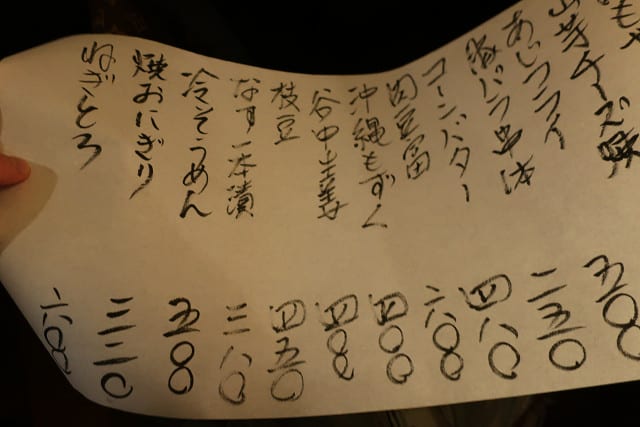 山芋チーズ焼
あじフライ 五〇〇
豚バラ 二五〇
コーンバター 四八〇
肉豆富 六〇〇
沖縄もずく 四〇〇
谷中生姜 四〇〇
枝豆 四五〇
なす一本漬 三八〇
冷そうめん 五〇〇
焼おにぎり 三三〇
ねぎとろ 六〇〇